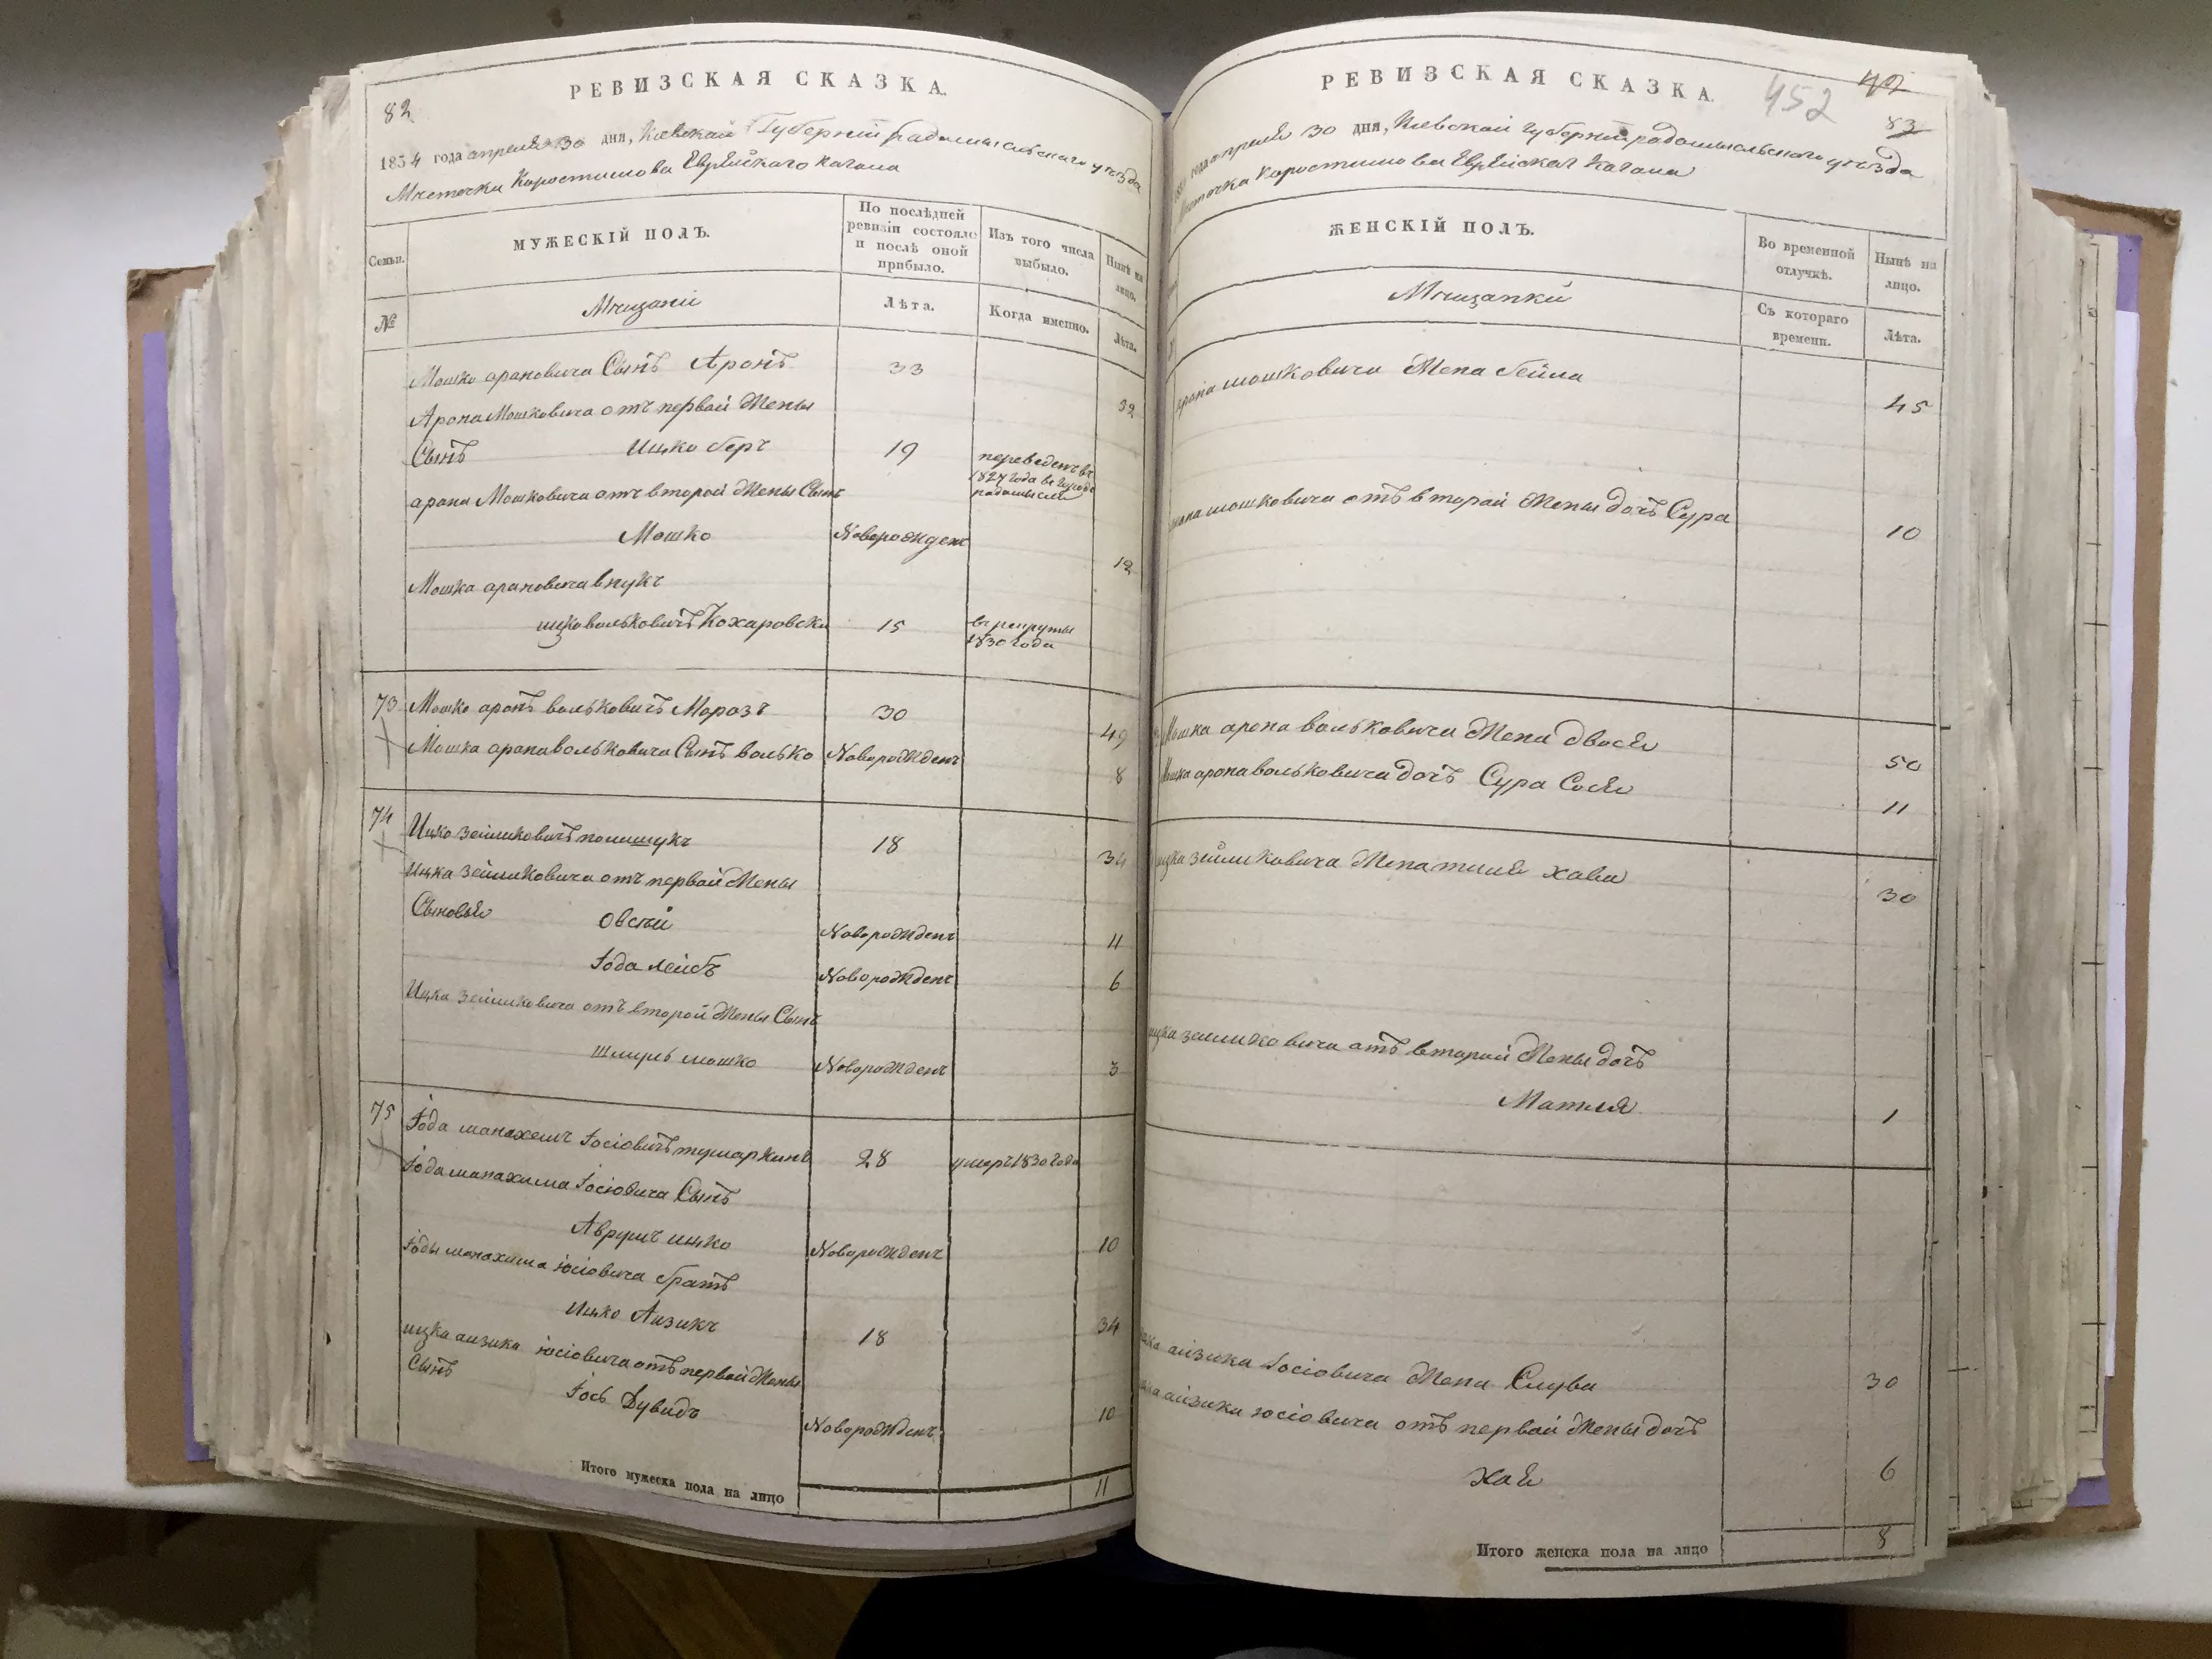 РЕВИЗСКАЯ СКАЗКА.
82
1834 года апреля 30 дня, Киевской Губернии радомысльского уезда
Местечка Коростишова Еврейскаго Кагала
Семьи.
МУЖЕСКІЙ ПОЛЪ.
По послѣдней ревизіи состояло и послѣ оной прибыло.
Изъ того числа выбыло.
Нынѣ на лицо.
№
Мещане
Лѣта.
Когда именно.
Лѣта.
Мошко ароновича Сынъ Аронъ 33
Арона Мошковича отъ первой Жены 32
Сынъ Ицко беръ 19 переведенъ въ 1827 года въ городъ радомысль
арона Мошковича отъ второй Жены Сынъ
Мошко Новорожденъ 12
Мошка ароновича внукъ
ицко волькович Кохаровски 15 въ рекруты 1830 года
73 Мошко аронъ вольковичъ Морозъ 30 49
Мошка арона вольковича Сынъ волько Новорожденъ 8
74 Ицко зейликовичъ полищукъ 18 34
Ицка зейликовича отъ первой Жены
Сыновья Овсей Новорожденъ 11
Іода лейбъ Новорожденъ 6
Ицка зейликовича отъ второй Жены Сынъ
шмуль мошко Новорожденъ 3
75 Іода манахемъ Іосіовичъ тумаркинъ 28 умеръ 1830 года
Іода манахима Іосіовича Сынъ
Аврумъ ицко Новорожденъ 10
Іоды манахима іосіовича братъ
Ицко Аизикъ 18 34
ицка аизика іосіовича отъ первой Жены
Сынъ
Іось Дувидъ Новорожденъ 10
Итого мужеска пола на лицо 11
РЕВИЗСКАЯ СКАЗКА.
452
83
года апреля 30 дня, Киевской губернии радомысльского уезда
Местечка Коростишова Еврейскаго Кагала
ЖЕНСКІЙ ПОЛЪ.
Во временной отлучкѣ.
Нынѣ на лицо.
Мещанки
Съ котораго времени.
Лѣта.
арона мошковича Жена бейла 45
арона мошковича отъ второй Жены дочь Сура 10
Мошка арона вольковича Жена двося 50
Мошка арона вольковича дочь Сура Сося 11
ицка зейликовича Жена хава 30
ицка зейликовича отъ второй Жены дочь
Матля 1
ицка аизика Іосіовича Жена Слува 30
ицка аизика іосіовича отъ первой Жены дочь
хая 6
Итого женска пола на лицо 8